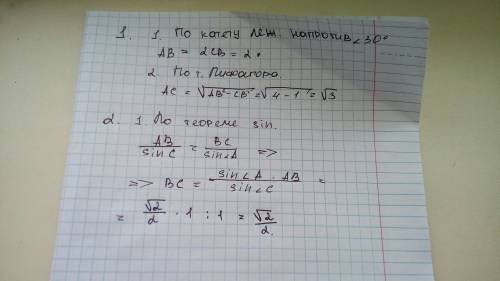 1. 1. По катету леж. напротив ∠30°
AB = 2CB = 2.
2. По т. Пифагора.
AC = √AB²-CB² = √4-1 = √3
2. 1 По теореме sin.
AB/sin C = BC/sin∠A =>
=> BC = sin∠A · AB/sin∠C =
= √2/2 · 1 : 1 = √2/2.